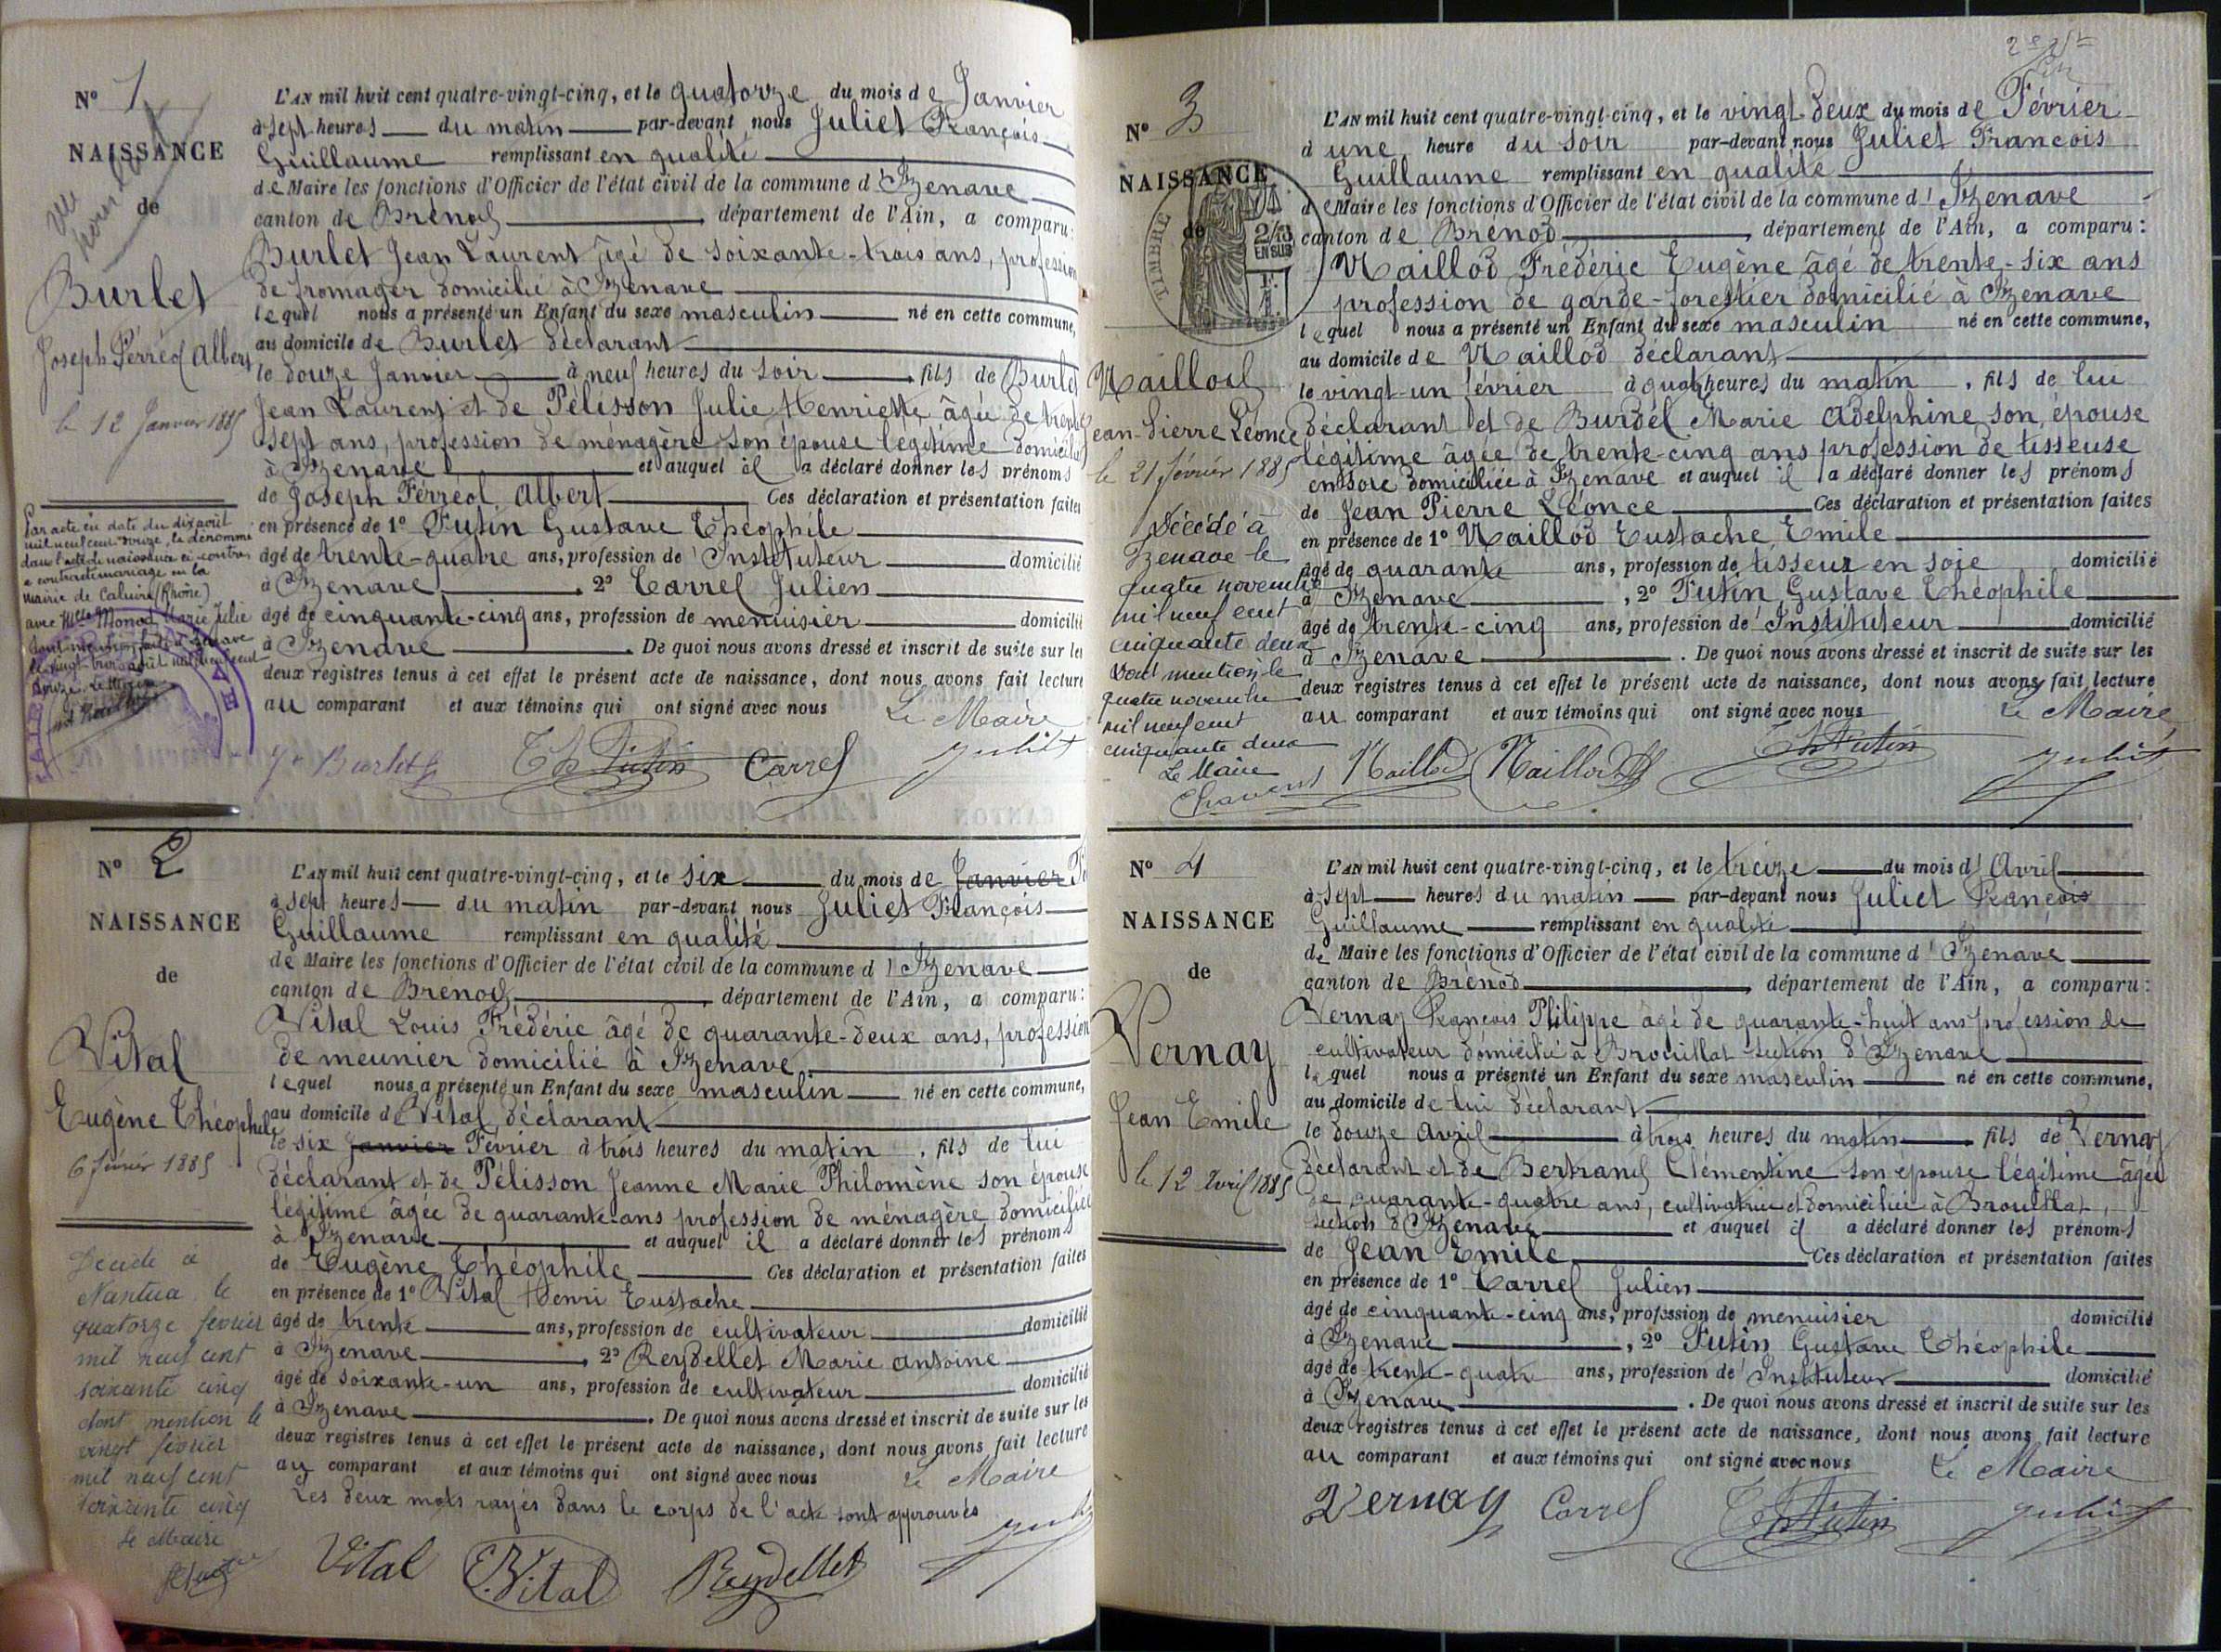 N° 1
NAISSANCE
de
Burlet
Joseph Ferréol Albert
le 12 Janvier 1885
Par acte en date du dix août
mil neuf cent douze, le dénommé
dans l'acte de naissance ci-contre
a contracté mariage en la
mairie de Caluire (Rhône)
avec Melle Monod Marie Julie
L'AN mil huit cent quatre-vingt-cinq, et le quatorze du mois de Janvier
à sept heures du matin par-devant nous Juliet François
Guillaume remplissant en qualité
de Maire les fonctions d'Officier de l'état civil de la commune d'Izenave
canton de Brénod, département de l'Ain, a comparu:
Burlet Jean Laurent âgé de soixante-trois ans, profession
de fromager domicilié à Izenave
lequel nous a présenté un Enfant du sexe masculin né en cette commune,
au domicile de Burlet déclarant
le douze Janvier à neuf heures du soir, fils de Burlet
Jean Laurent et de Pélisson Julie Henriette âgée de trente
sept ans, profession de ménagère son épouse légitime domiciliée
à Izenave et auquel il a déclaré donner les prénoms
de Joseph Ferréol Albert Ces déclaration et présentation faites
en présence de 1° Futin Gustave Théophile
âgé de trente-quatre ans, profession d'Instituteur domicilié
à Izenave, 2° Carrel Julien
âgé de cinquante-cinq ans, profession de menuisier domicilié
à Izenave. De quoi nous avons dressé et inscrit de suite sur les
deux registres tenus à cet effet le présent acte de naissance, dont nous avons fait lecture
au comparant et aux témoins qui ont signé avec nous Le Maire
Burlet Th Futin Carrel Juliet
N° 2
NAISSANCE
de
Vital
Eugène Théophile
6 février 1885
Décédé à
Nantua le
quatorze février
mil neuf cent
soixante cinq
dont mention le
vingt février
mil neuf cent
soixante cinq
Le Maire
L'AN mil huit cent quatre-vingt-cinq, et le six du mois de Janvier
à sept heures du matin par-devant nous Juliet François
Guillaume remplissant en qualité
de Maire les fonctions d'Officier de l'état civil de la commune d'Izenave
canton de Brenod, département de l'Ain, a comparu:
Vital Louis Frédéric âgé de quarante-deux ans, profession
de meunier domicilié à Izenave
lequel nous a présenté un Enfant du sexe masculin né en cette commune,
au domicile de Vital déclarant
le six Janvier Février à trois heures du matin, fils de lui
déclarant et de Pélisson Jeanne Marie Philomène son épouse
légitime âgée de quarante-ans profession de ménagère domiciliée
à Izenave et auquel il a déclaré donner les prénoms
de Eugène Théophile Ces déclaration et présentation faites
en présence de 1° Vital Henri Eustache
âgé de trente ans, profession de cultivateur domicilié
à Izenave, 2° Reydellet Marie Antoine
âgé de soixante-un ans, profession de cultivateur domicilié
à Izenave. De quoi nous avons dressé et inscrit de suite sur les
deux registres tenus à cet effet le présent acte de naissance, dont nous avons fait lecture
au comparant et aux témoins qui ont signé avec nous Le Maire
Les deux mots rayés dans le corps de l'acte sont approuvés
Vital E. Vital Reydellet
N° 3
NAISSANCE
de
TIMBRE
2/10 EN SUS
Maillod
Jean-Pierre Léonce
le 21 février 1885
Décédé à
Izenave le
quatre novembre
mil neuf cent
cinquante deux
dont mention le
quatre novembre
mil neuf cent
cinquante deux
Le Maire
L'AN mil huit cent quatre-vingt-cinq, et le vingt-deux du mois de Février
à une heure du soir par-devant nous Juliet François
Guillaume remplissant en qualité
de Maire les fonctions d'Officier de l'état civil de la commune d'Izenave
canton de Brénod, département de l'Ain, a comparu:
Maillod Frédéric Eugène âgé de trente-six ans
profession de garde-forestier domicilié à Izenave
lequel nous a présenté un Enfant du sexe masculin né en cette commune,
au domicile de Maillod déclarant
le vingt-un février à quatre heures du matin, fils de lui
déclarant et de Burdel Marie Adelphine son épouse
légitime âgée de trente-cinq ans profession de tisseuse
en soie domiciliée à Izenave et auquel il a déclaré donner les prénoms
de Jean Pierre Léonce Ces déclaration et présentation faites
en présence de 1° Maillod Eustache Emile
âgé de quarante ans, profession de tisseur en soie domicilié
à Izenave, 2° Futin Gustave Théophile
âgé de trente-cinq ans, profession d'Instituteur domicilié
à Izenave. De quoi nous avons dressé et inscrit de suite sur les
deux registres tenus à cet effet le présent acte de naissance, dont nous avons fait lecture
au comparant et aux témoins qui ont signé avec nous Le Maire
Maillod Maillod Th Futin Juliet
N° 4
NAISSANCE
de
Vernay
Jean Emile
le 12 Avril 1885
L'AN mil huit cent quatre-vingt-cinq, et le treize du mois d'Avril
à sept heures du matin par-devant nous Juliet François
Guillaume remplissant en qualité
de Maire les fonctions d'Officier de l'état civil de la commune d'Izenave
canton de Brénod, département de l'Ain, a comparu:
Vernay François Philippe âgé de quarante-huit ans profession de
cultivateur domicilié à Brouillat section d'Izenave
lequel nous a présenté un Enfant du sexe masculin né en cette commune,
au domicile de lui déclarant
le douze Avril à trois heures du matin, fils de Vernay
déclarant et de Bertrand Clémentine son épouse légitime âgée
de quarante-quatre ans, cultivatrice et domiciliée à Brouillat,
section d'Izenave et auquel il a déclaré donner les prénoms
de Jean Emile Ces déclaration et présentation faites
en présence de 1° Carrel Julien
âgé de cinquante-cinq ans, profession de menuisier domicilié
à Izenave, 2° Futin Gustave Théophile
âgé de trente-quatre ans, profession d'Instituteur domicilié
à Izenave. De quoi nous avons dressé et inscrit de suite sur les
deux registres tenus à cet effet le présent acte de naissance, dont nous avons fait lecture
au comparant et aux témoins qui ont signé avec nous Le Maire
Vernay Carrel Th Futin Juliet